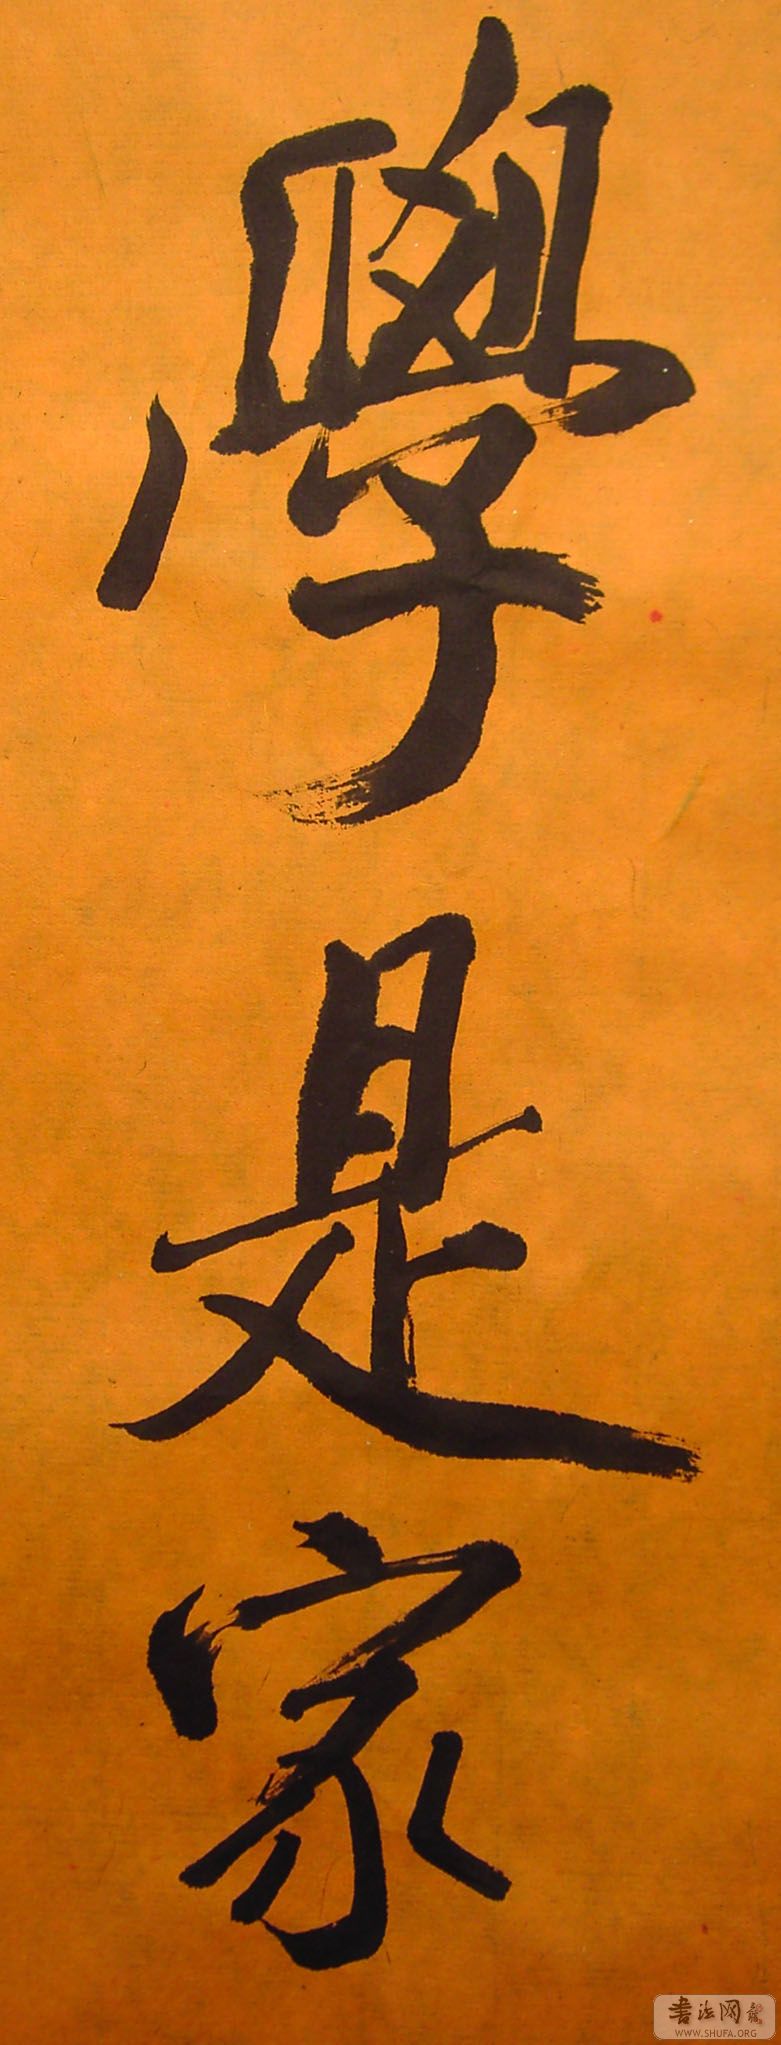 學是家
书法网
WWW.SHUFA.ORG